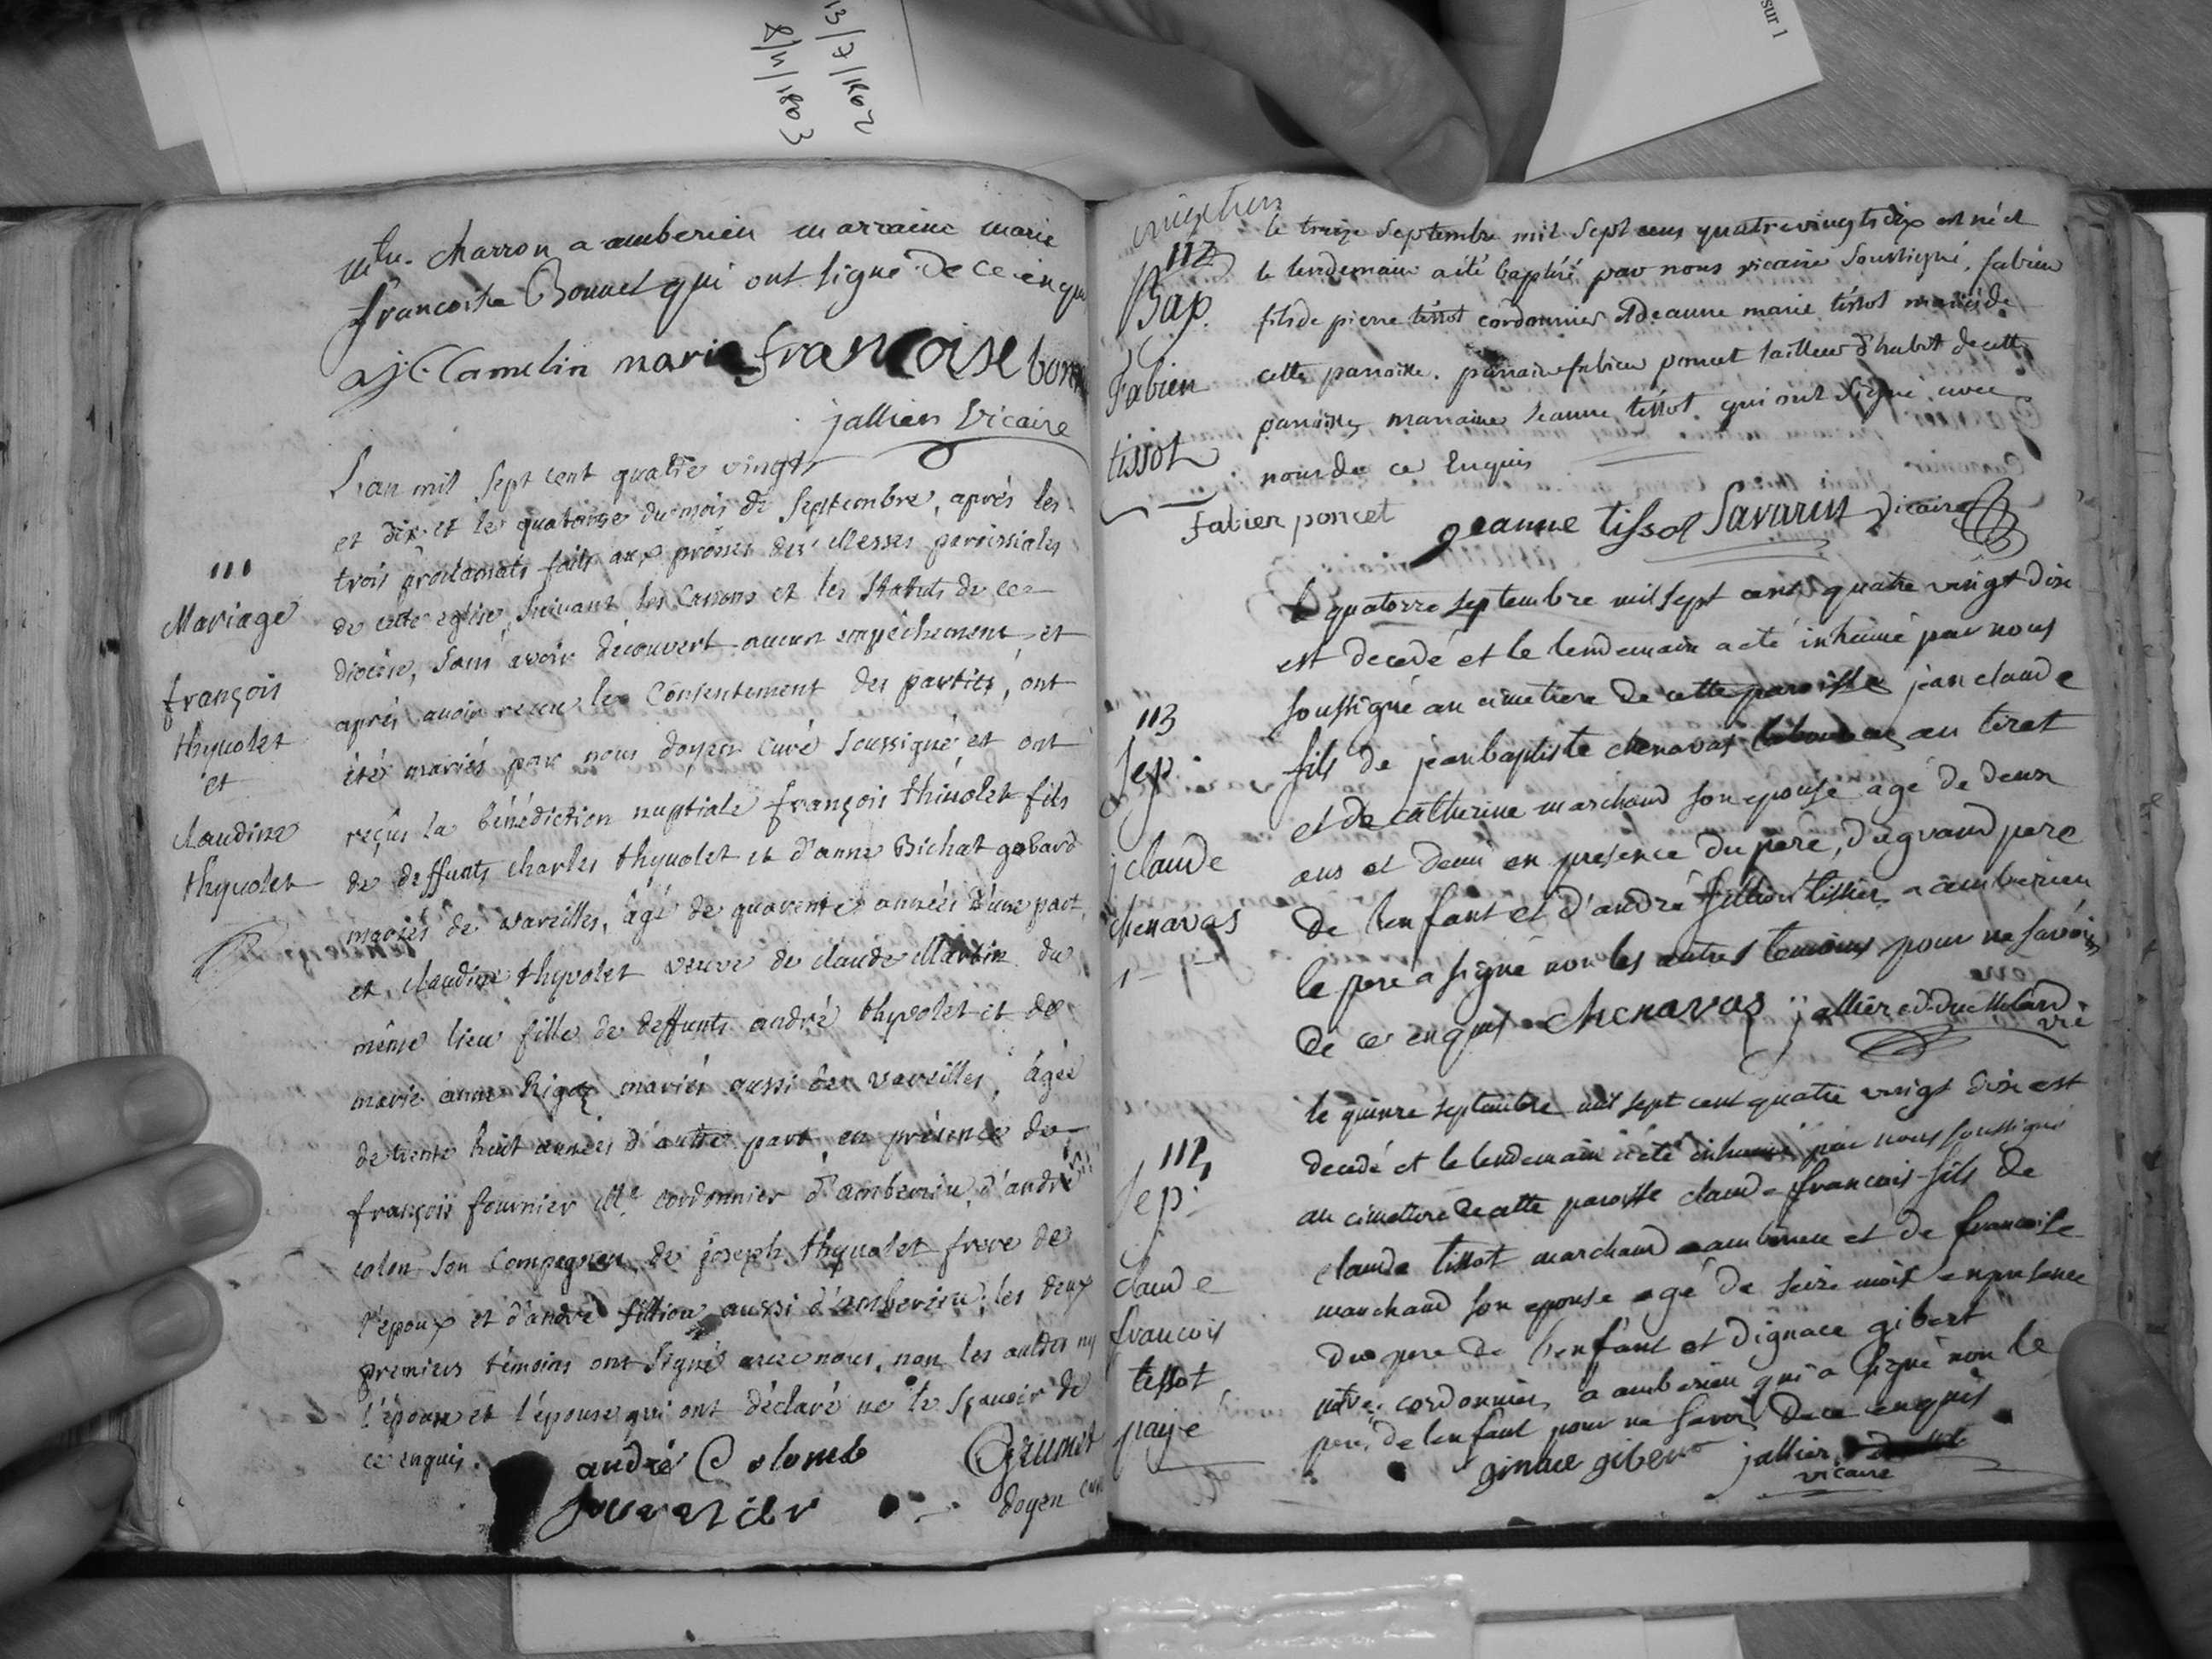 sur 1
13/7/1802
8/4/1803
mtre. charron a amberieu marraine marie
francoise Bonnet qui ont signé de ce enquis
a j C Camelin marie francoise bonn
jallier Vicaire
111
Mariage
françois
thyvolet
et
claudine
thyvolet
L'an mil sept cent quatre vingt
et dix et le quatorze du mois de Septembre, aprés les
trois proclamats faits aux prônes des Messes paroissiales
de cette eglise, suivant les Canons et les Statuts de ce
diocèse, sans avoir découvert aucun empêchement, et
aprés avoir receu le Consentement des parties, ont
étés mariés par nous doyen curé soussigné et ont
reçûs la bénédiction nuptiale françois thivolet fils
de deffunts charles thyvolet et d'anne Bichat gobard
mariés de vareilles, âgé de quarente années d'une part,
et claudine thyvolet veuve de claude Martin du
même lieu fille de deffunts andré thyvolet et de
marie anne Rigoz mariés aussi de vareilles, âgée
de trente huit années d'autre part, en présence de
françois fournier Me. cordonnier d'amberieu, d'andré
colon son Compagnon, de joseph thyvolet frere de
l'époux et d'andré fillion aussi d'amberieu; les deux
premiers témoins ont signé avec nous, non les autres ny
l'époux et l'épouse qui ont déclaré ne le sçavoir de
ce enquis.
andré Colomb
Grumet
doyen curé
112
Bap.
Fabien
tissot
le treize Septembre mil Sept cens quatrevingts dix est né et
le lendemain a été baptisé par nous vicaire Soussigné, fabien
fils de pierre tissot cordonnier et de anne marie tissot mariés de
cette paroisse. parrain fabien poncet tailleur d'habit de cette
paroisse, marraine Jeanne tissot. qui ont signé avec
nous de ce Enquis
Fabien poncet
jeanne tissot Savarin vicaire
113
Sep.
j claude
chenavas
le quatorze septembre mil sept cent quatre vingt dix
est decedé et le lendemain a eté inhumé par nous
soussigné au cimetiere de cette paroisse jean claude
fils de jean baptiste chenavas laboureur au tiret
et de catherine marchand son epouse agé de deux
ans et demi en presence du pere, du grand pere
de l'enfant et d'andré fillion tissier a amberieu
le pere a signé non les autres temoins pour ne savoir
de ce enquis chenavas jallier
114
Sep.
claude
francois
tissot
paye
le quinze septembre mil sept cent quatre vingt dix est
decedé et le lendemain a eté inhumé par nous soussigné
au cimetiere de cette paroisse claude francois fils de
claude tissot marchand a amberieu et de francoise
marchand son epouse agé de seize mois en presence
du pere de l'enfant et d'ignace gibert
mtre. cordonnier a amberieu qui a signé non le
pere de l'enfant pour ne savoir de ce enquis
ginace giber jallier
vicaire